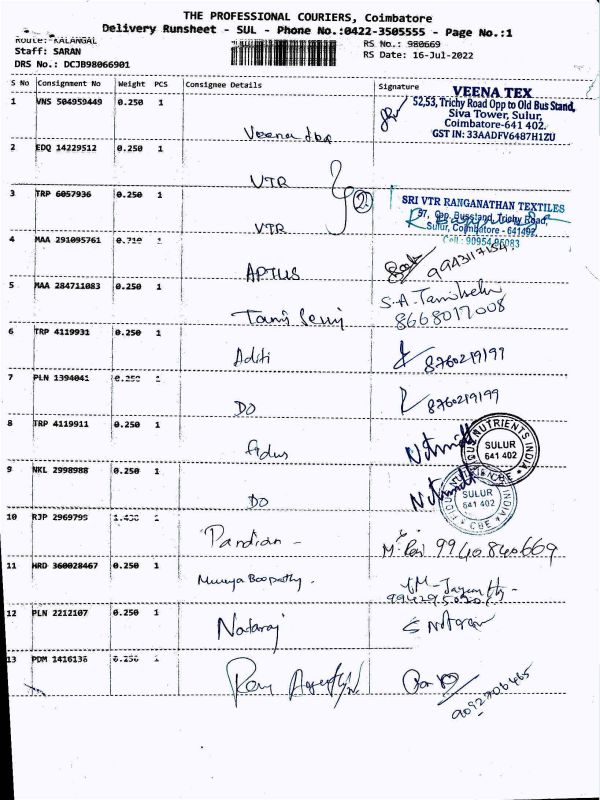 THE PROFESSIONAL COURIERS, Coimbatore
Delivery Runsheet - SUL - Phone No.:0422-3505555 - Page No.:1
Route: KALANGAL
RS No.: 980669
Staff: SARAN
RS Date: 16-Jul-2022
DRS No.: DCJB98066901
S No Consignment No Weight PCS Consignee Details Signature
1 VNS 504959449 0.250 1
VEENA TEX
52,53, Trichy Road Opp to Old Bus Stand,
Siva Tower, Sulur,
Coimbatore-641 402.
GST IN: 33AADFV6487H1ZU
Veena
2 EDQ 14229512 0.250 1
VTR
3 TRP 6057936 0.250 1
2
SRI VTR RANGANATHAN TEXTILES
97, Opp. Busstand, Trichy Road,
Sulur, Coimbatore - 641402
VTR
4 MAA 291095761 0.710 1
APTUS
5 MAA 284711083 0.250 1
S.A. Tamilselvi
8668017008
6 TRP 4119931 0.250 1
Aditi
8760219199
7 PLN 1394041 0.250 1
DO
8760219199
8 TRP 4119911 0.250 1
NUTRIENTS INDIA
SULUR
641 402
CBE
9 NKL 2998988 0.250 1
DO
SULUR
641 402
CBE
10 RJP 2969795 1.430 1
Pandian -
9940840669
11 HRD 360028467 0.250 1
Boopathy.
12 PLN 2212107 0.250 1
Nataraj
13 PDM 1416136 0.250 1
9092706465